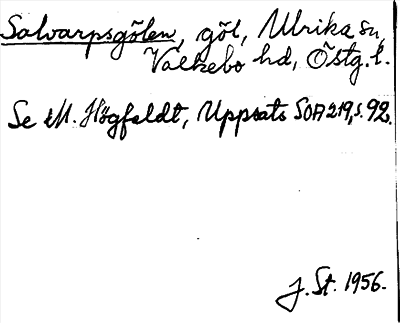 Salvarpsgölen, göl, Ulrika sn,
Valkebo hd, Östg. l.
Se M. Högfeldt, Uppsats SOA 219, s. 92.
J. St. 1956.